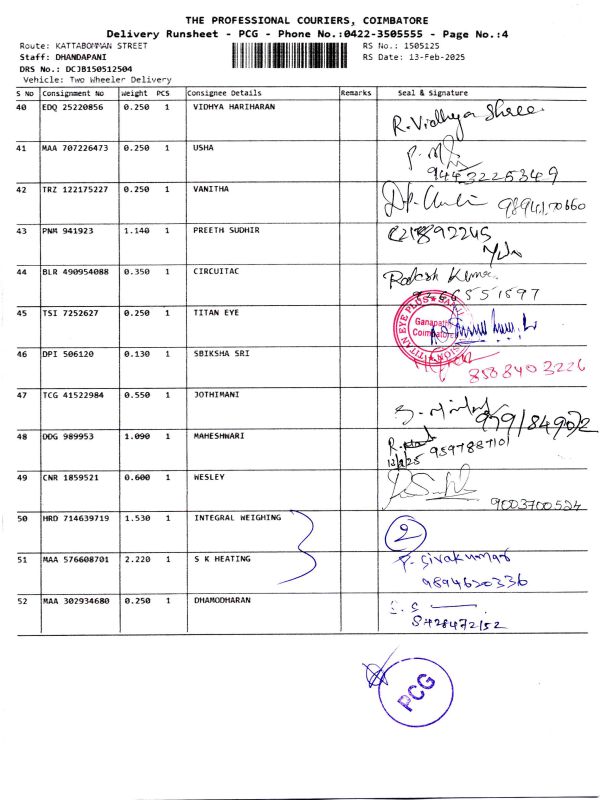 THE PROFESSIONAL COURIERS, COIMBATORE
Delivery Runsheet - PCG - Phone No.:0422-3505555 - Page No.:4
Route: KATTABOMMAN STREET RS No.: 1505125
Staff: DHANDAPANI RS Date: 13-Feb-2025
DRS No.: DCJB150512504
Vehicle: Two Wheeler Delivery
S No Consignment No Weight PCS Consignee Details Remarks Seal & Signature
40 EDQ 25220856 0.250 1 VIDHYA HARIHARAN R. Vidhya Shree
41 MAA 707226473 0.250 1 USHA
9443225349
42 TRZ 122175227 0.250 1 VANITHA 9894170660
43 PNM 941923 1.140 1 PREETH SUDHIR
44 BLR 490954088 0.350 1 CIRCUITAC Radesh Kumar
45 TSI 7252627 0.250 1 TITAN EYE
TITAN EYE PLUS
Coimbatore
46 DPI 506120 0.130 1 SBIKSHA SRI
8508403226
47 TCG 41522984 0.550 1 JOTHIMANI
48 DDG 989953 1.090 1 MAHESHWARI
9597887101
49 CNR 1859521 0.600 1 WESLEY
9003700524
50 HRD 714639719 1.530 1 INTEGRAL WEIGHING 2
51 MAA 576608701 2.220 1 S K HEATING P. Sivakumar
9894620336
52 MAA 302934680 0.250 1 DHAMODHARAN
PCG